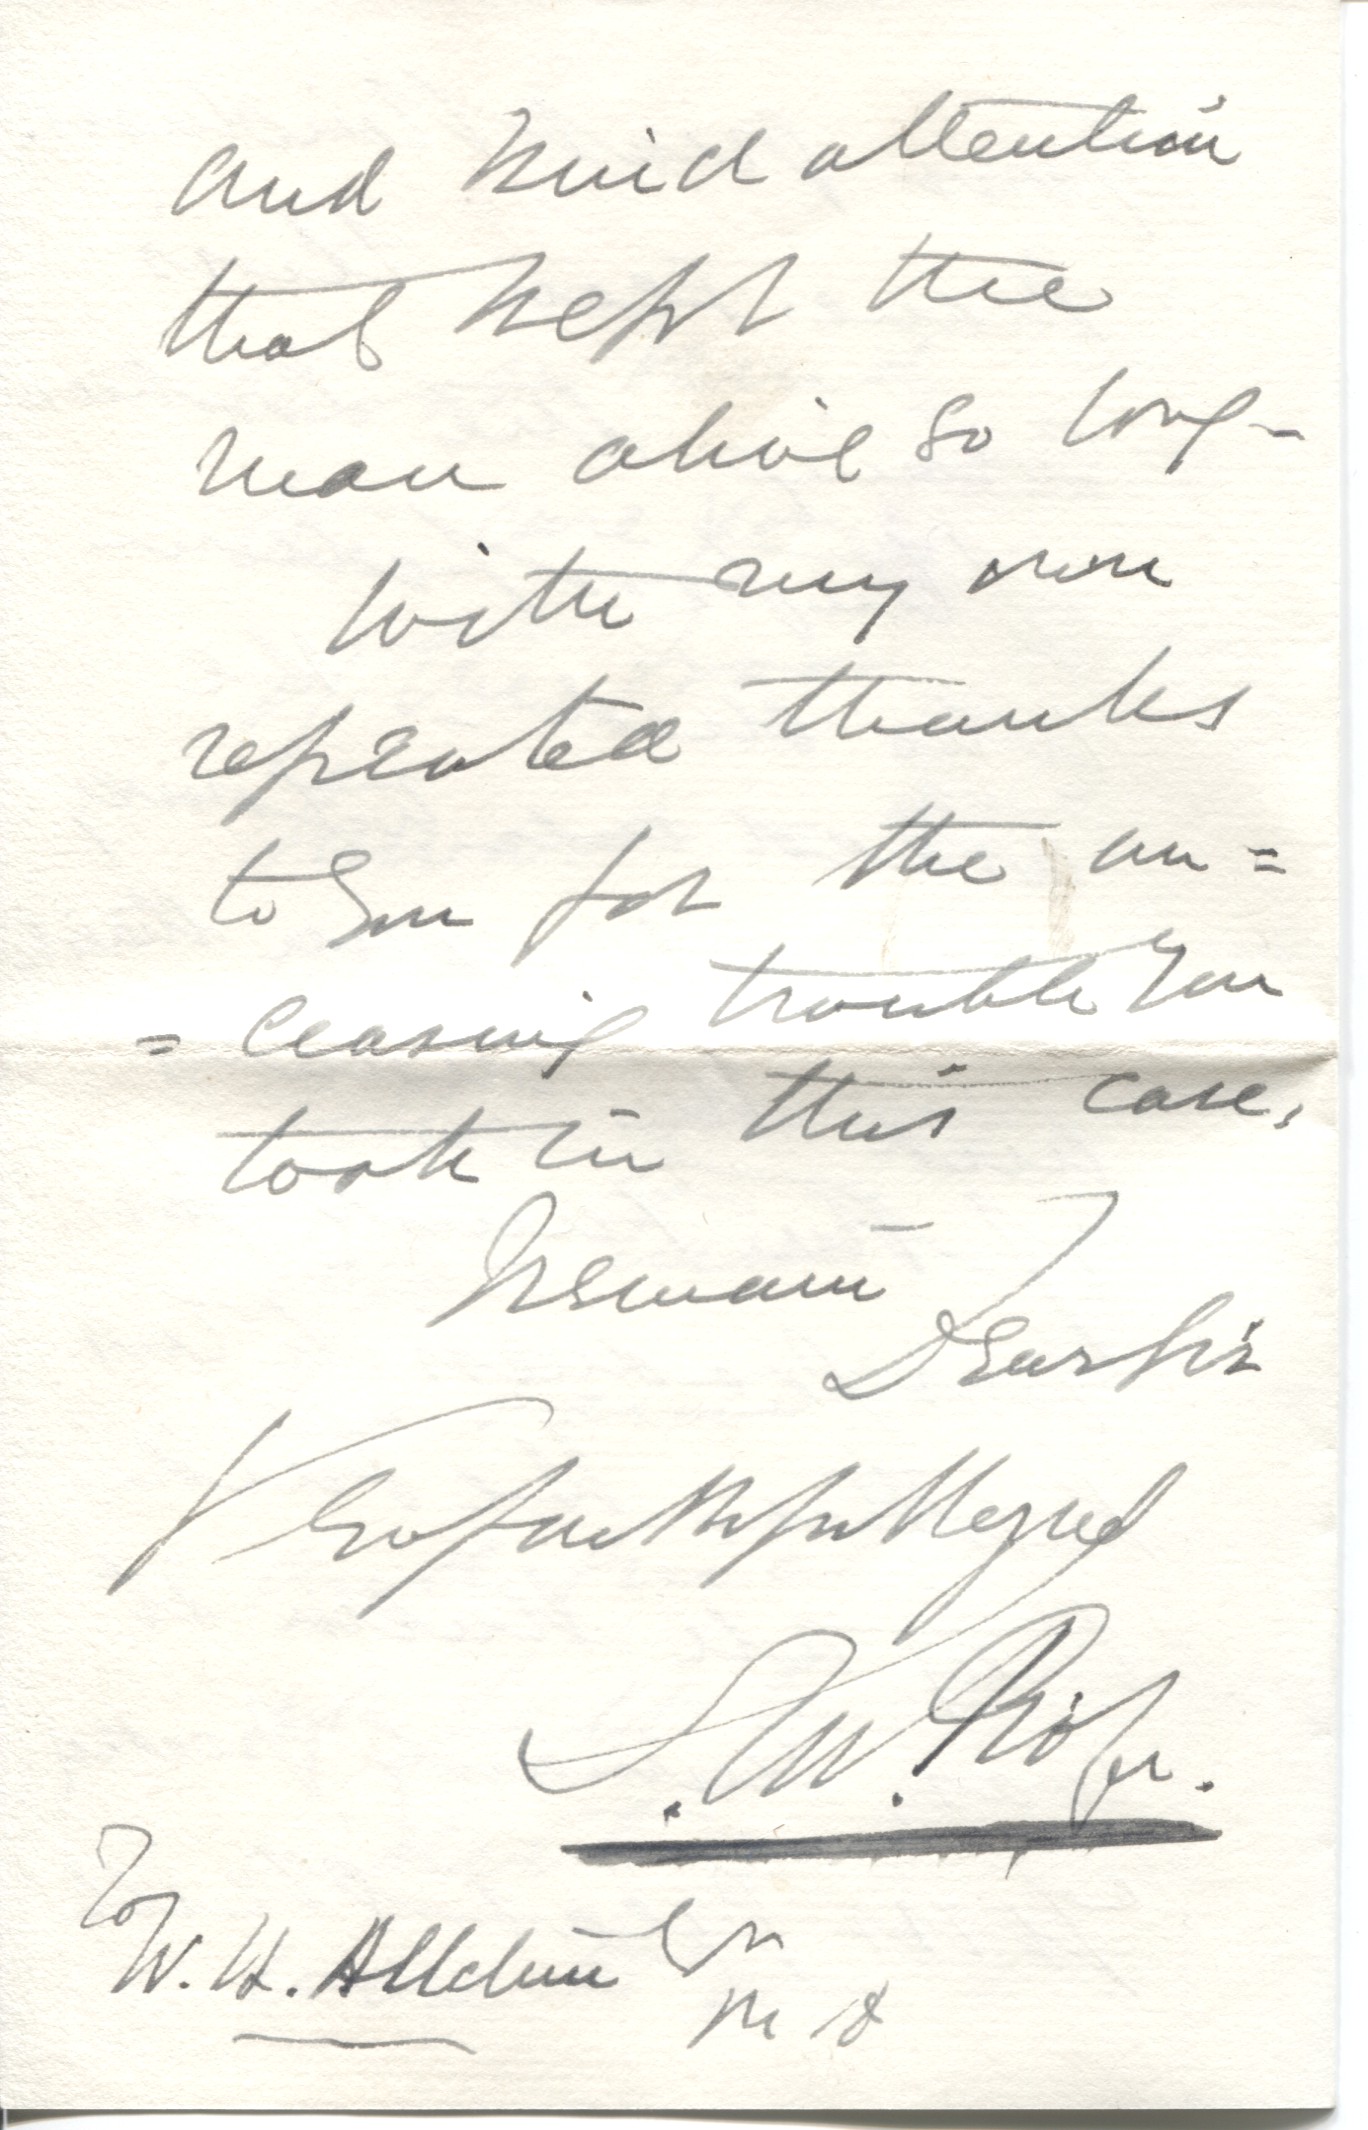 and kind attention
that kept the
man alive so long -
With my own
repeated thanks
to you for the un=
=ceasing trouble you
took in this case,
I remain
Dear Sir
Very faithfully yrs
To
W. H.
M D